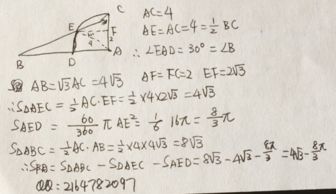 AC=4
AE=AC=4=½BC
∴∠EAD=30°=∠B
AB=√3AC=4√3  AF=FC=2  EF=2√3
∴S△AEC=½AC·EF=½×4×2√3=4√3
SAED=60/360πAE²=⅙16π=8/3π
S△ABC=½AC·AB=½×4×4√3=8√3
∴S阴=S△ABC-S△AEC-SAED=8√3-4√3-8π/3=4√3-8π/3
QQ:2164782097
C
E
F
2
4
B
D
A